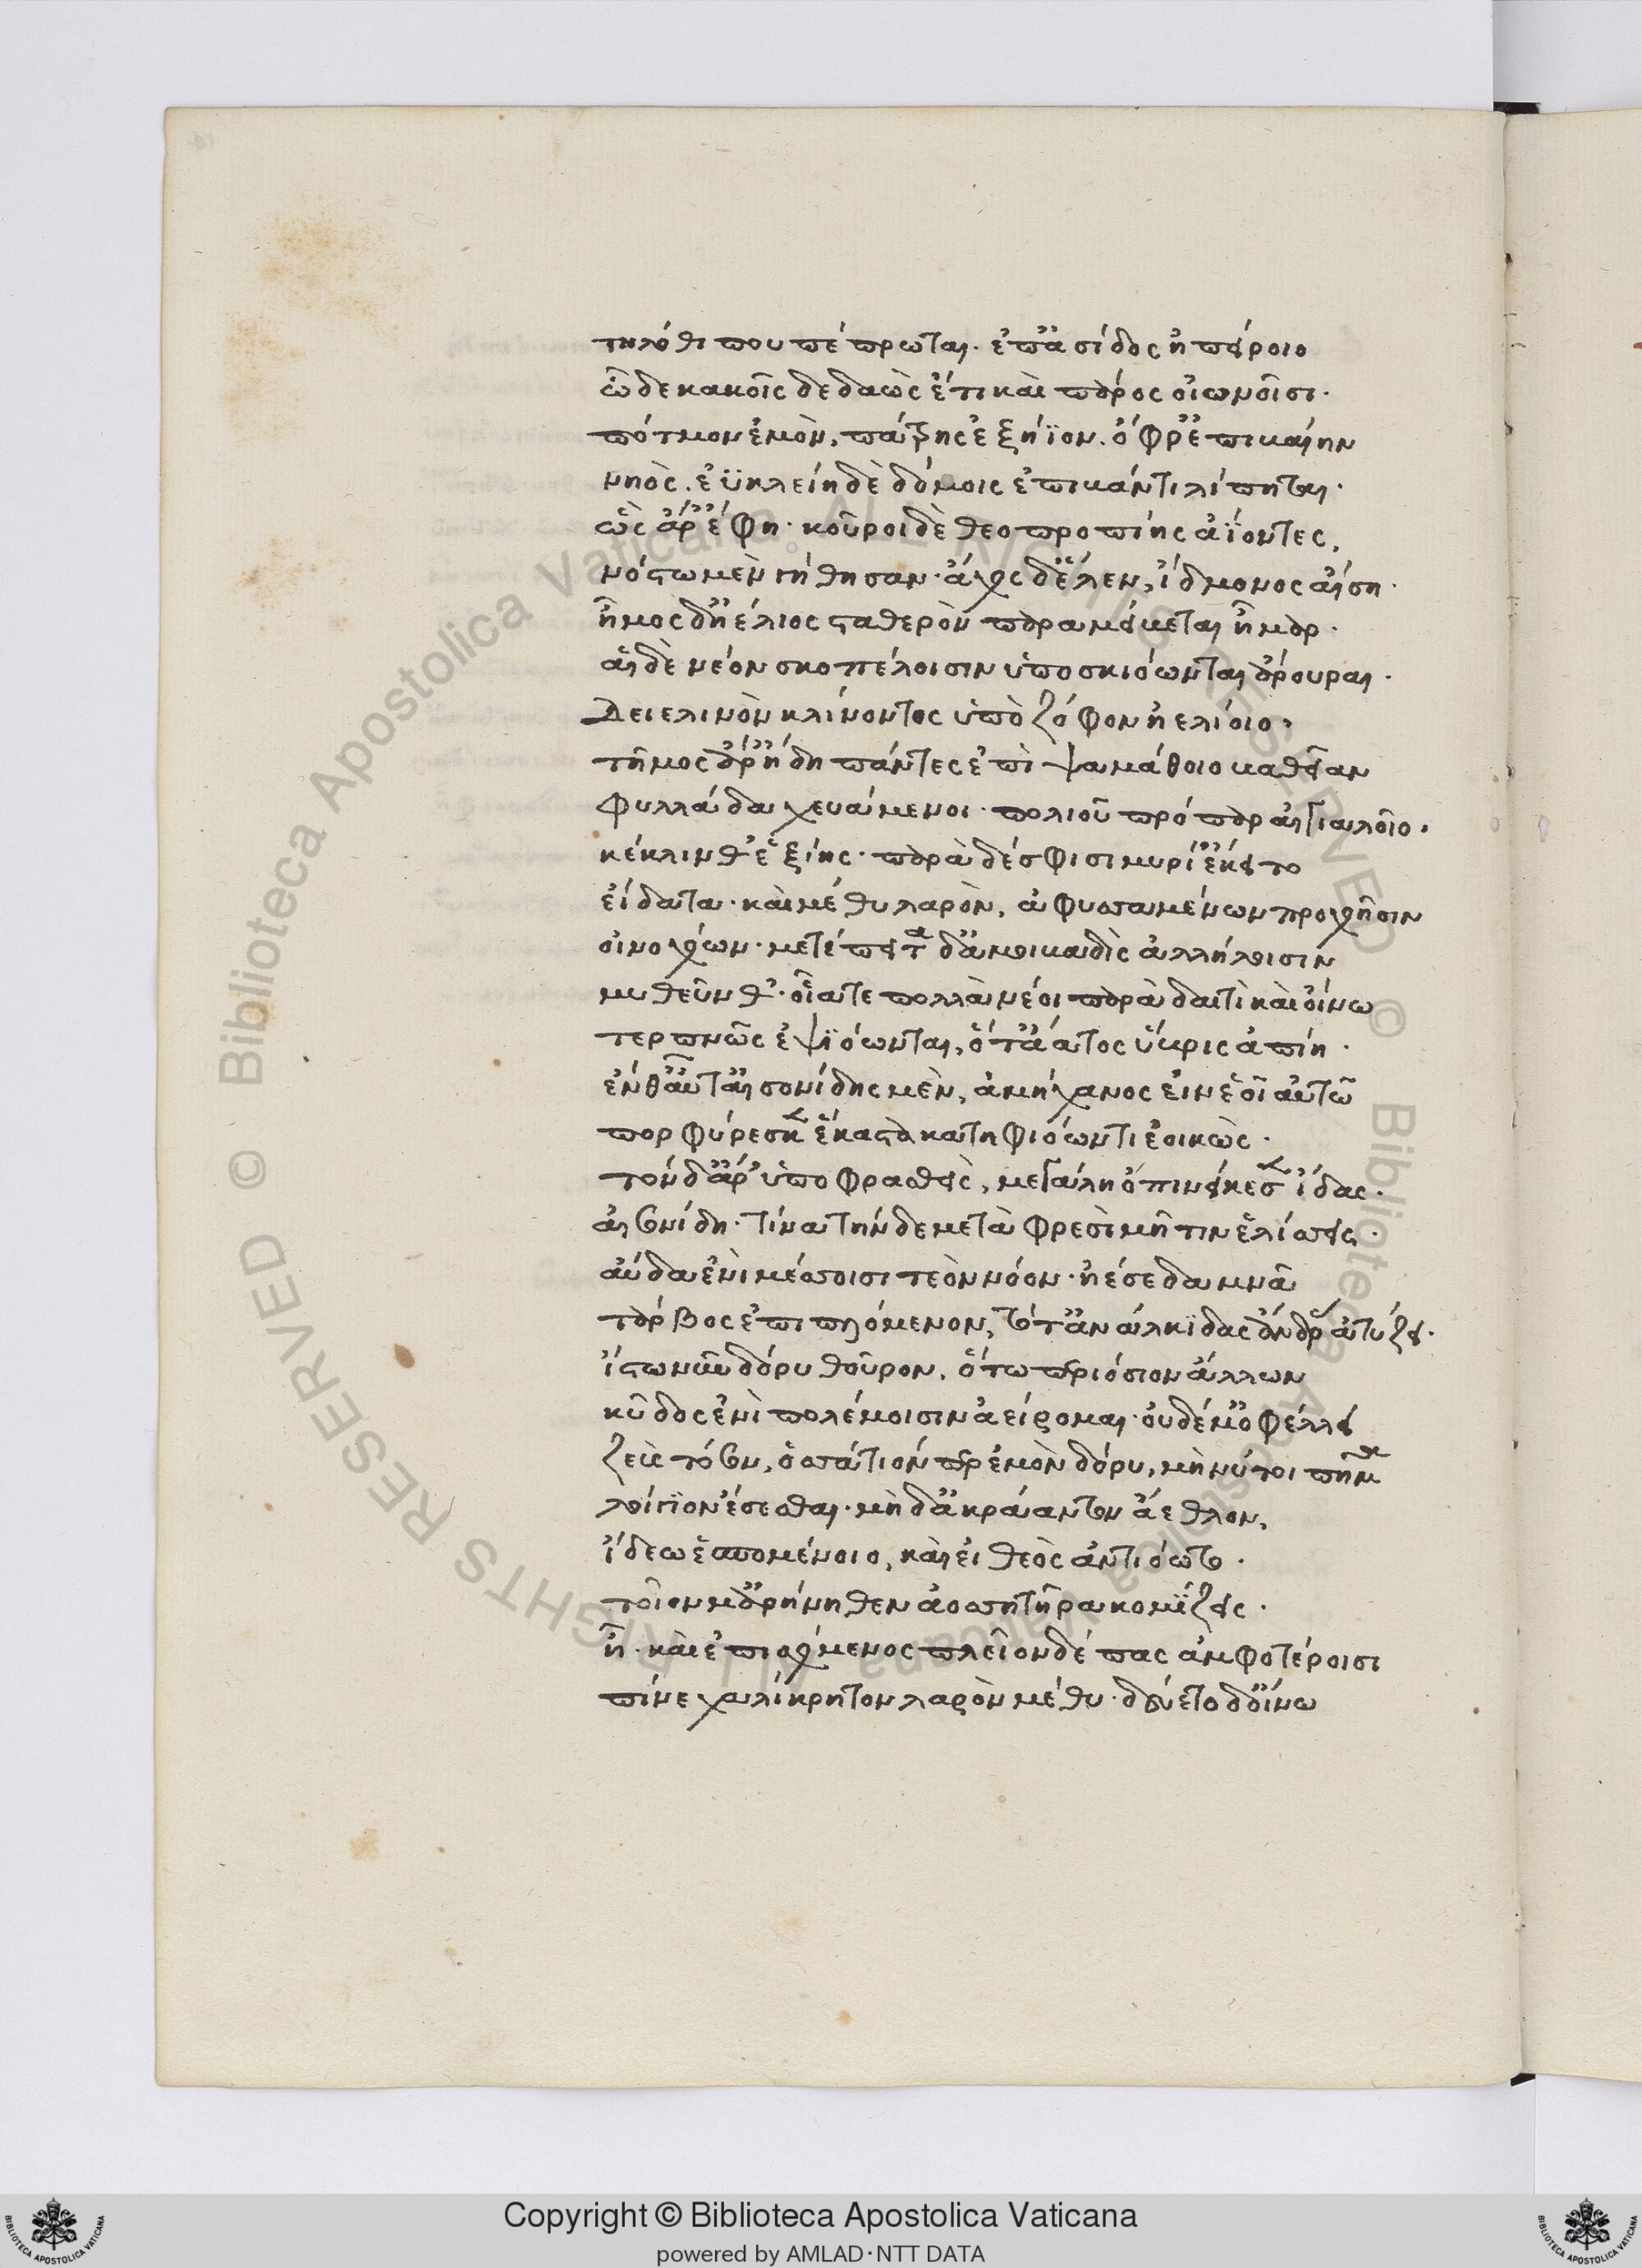 τηλόθι που πέπρωται. ἐπ' ἀσίδος ἠπείροιο
ὧδε κακοῖς δεδαὼς ἔτι καὶ πάρος οἰωνοῖσι·
πότμον ἐμὸν, πάτρης ἐξήϊον. ὄφρ' ἐπιβαίην
νηὸς. ἐϋκλείη δὲ δόμοις ἐπιβάντι λίπηται·
ὣς ἄρ' ἔφη· κοῦροι δὲ θεοπροπίης ἀΐοντες,
νόστω μὲν γήθησαν· ἄχος δ' ἕλεν, ἴδμονος αἴση·
ἦμος δ' ἠέλιος σταθερὸν παραμείβεται ἦμαρ·
αἱ δὲ νέον σκοπέλοισιν ὑποσκιόωνται ἄρουραι·
Δειελινὸν κλίνοντος ὑπὸ ζόφον ἠελίοιο·
τῆμος ἄρ' ἤδη πάντες ἐπὶ ψαμάθοιο βαθεῖαν
φυλλάδα χευάμενοι· πολιοῦ πρόπαρ αἰγιαλοῖο·
κέκλινθ' ἑξίης· παρὰ δέ σφισι μυρί' ἔκειτο
εἴδατα· καὶ μέθυ λαρὸν, ἀφυσσαμένων προχῆσιν
οἰνοχόων· μετέπειτα δ' ἀμοιβαδὶς ἀλλήλοισιν
μυθεῦνθ'· οἷα τε πολλὰ νέοι παρὰ δαιτὶ καὶ οἴνω
τερπνῶς ἐψιόωνται, ὅτ' ἄατος ὕβρις ἀπίη·
ἔνθ' αὖτ' αἰσονίδης μὲν, ἀμήχανος εἰν ἑοῖ αὐτῶ
πορφύρεσκεν ἕκαστα κατηφιόωντι ἐοικώς·
τὸν δ' ἄρ' ὑποφρασθεὶς, μεγάλη ὀπὶ νείκεσεν ἴδας·
αἰσονίδη· τίνα τήνδε μετὰ φρεσὶ μῆτιν ἑλίσσεις·
αὔδα ἐνὶ μέσσοισι τεὸν νόον· ἠέ σε δαμνᾶ
τάρβος ἐπιπλόμενον, τό τ' ἀνάλκιδας ἄνδρας ἀτύζει·
ἴστω νῦν δόρυ θοῦρον, ὅτω περιόσιον ἄλλων
κῦδος ἐνὶ πολέμοισιν ἀείρομαι· οὐδέ μ' ὀφέλλει
ζεὺς τόσον, ὁσσάτιόν περ ἐμὸν δόρυ, μὴ νύ τοι πῆμα
λοίγιον ἔσεσθαι· μὴ δ' ἀκράαντον ἄεθλον,
ἴδεω ἑσπομένοιο, καὶ εἰ θεὸς ἀντιόωτο·
τοῖον μ' ἀρήνηθεν ἀοσσητῆρα κομίζεις·
ἦ· καὶ ἐπισχόμενος πλεῖον δέπας ἀμφοτέροισι
πῖνε χαλίκρητον λαρὸν μέθυ· δεύετο δ' οἴνω